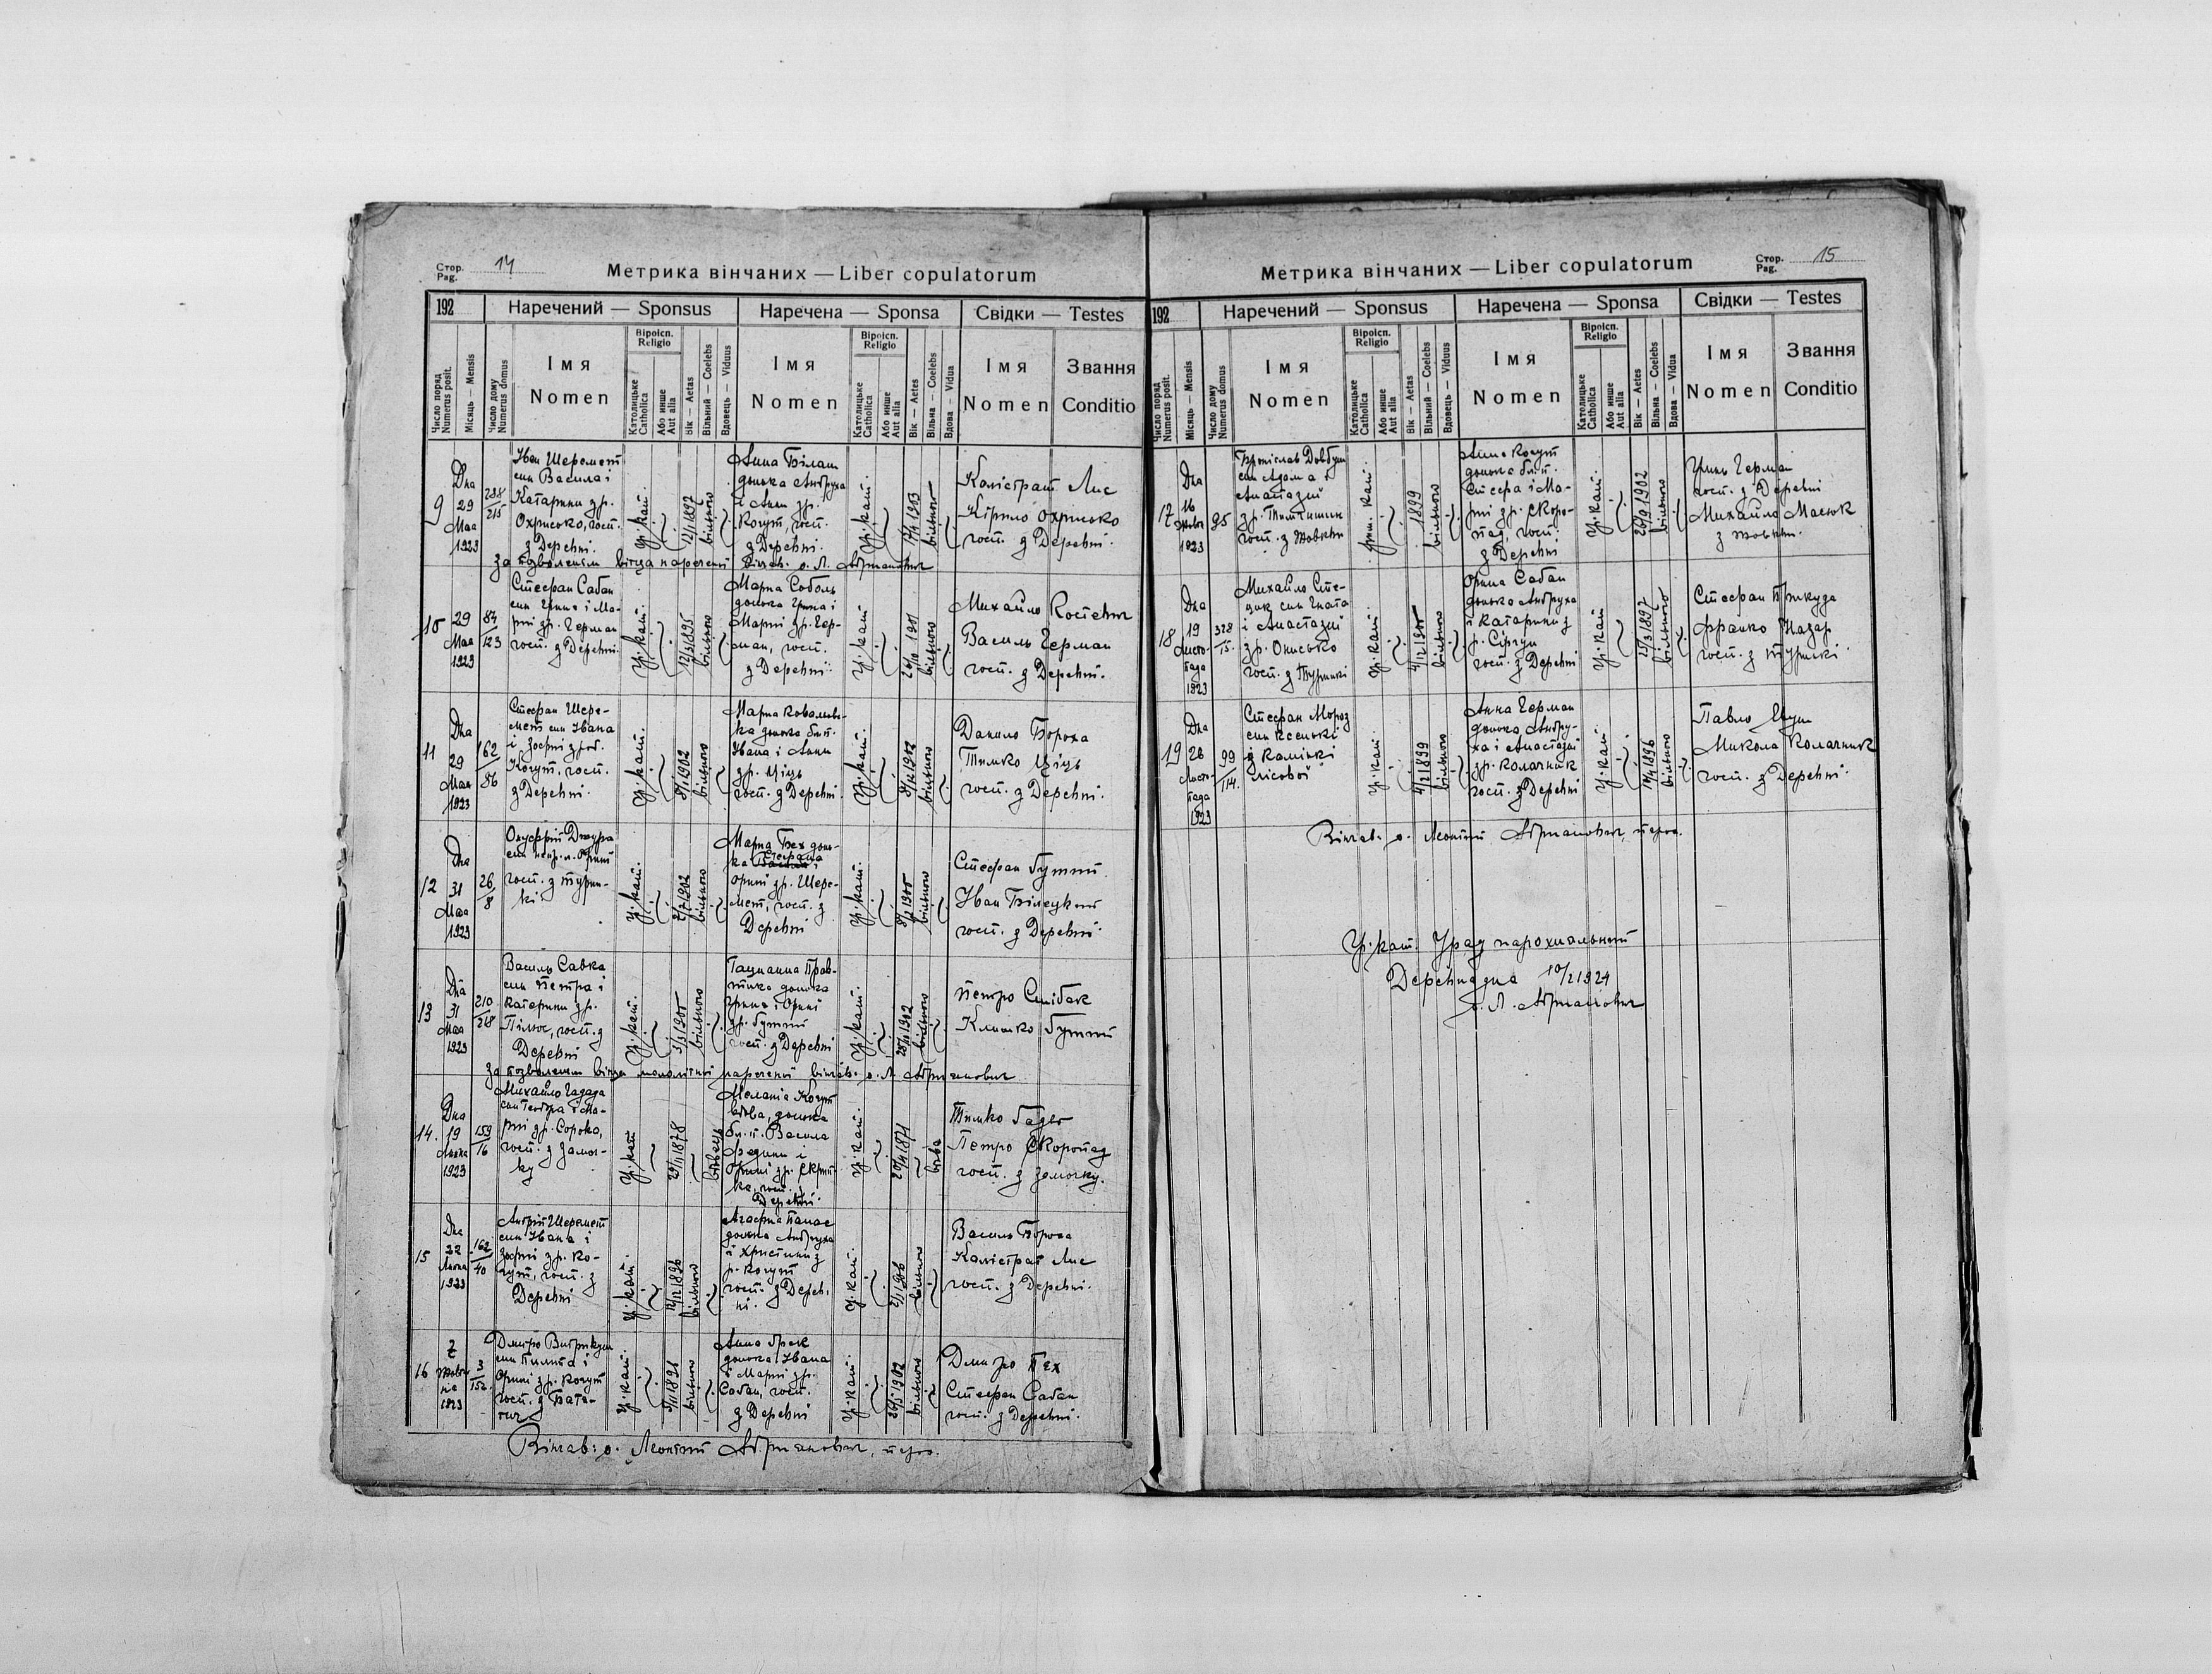 Стор.
Pag. 14
Метрика вінчаних — Liber copulatorum
192
Наречений — Sponsus
Наречена — Sponsa
Свідки — Testes
Число поряд
Numerus posit.
Місяць — Mensis
Число дому
Numerus domus
Імя
Nomen
Віроісп.
Religio
Католицьке
Catholica
Або инше
Aut alia
Вік — Aetas
Вільний — Coelebs
Вдовець — Viduus
Імя
Nomen
Віроісп.
Religio
Католицьке
Catholica
Або инше
Aut alia
Вік — Aetes
Вільна — Coelebs
Вдова — Vidua
Імя
Nomen
Звання
Conditio
9
Дна
29
Мая
1923
288/215
Іван Шеремет
син Василя і
Катарини зр.
Охрисько, госп.
з Деревні.
гр. кат.
12/1 1897
вільного
Анна Білаш
донька Андруха
і Анни зр.
Когут, госп.
з Деревні.
гр. кат.
17/4 1903
вільного
Калістрат Лис
Кирило Охрисько
госп. з Деревні.
за позволенєм вітця нареченої вінчав. о. Л. Абрманович
10
29
Мая
1923
84/123
Стефан Сабан
син Гриня і Ма-
рії зр. Герман
госп. з Деревні.
гр. кат.
12/3 1895
вільного
Марта Соболь
донька Гриня і
Марії зр. Гер-
ман, госп.
з Деревні.
гр. кат
26/10 1901
вільного
Михайло Костевич
Василь Герман
госп. з Деревні.
11
Дна
29
Мая
1923
162/86
Стефан Шере-
мет син Івана
і Зофії з род.
Когут, госп.
з Деревні.
гр. кат.
8/1 1902
вільного
Марта Ковалевс-
ка донька бл. п.
Івана і Анни
зр. Ціць
госп. з Деревні.
гр. кат.
8/12 1902
вільного
Данило Бороха
Тимко Ціць
госп. з Деревні.
12
Дна
31
Мая
1923
26/8
Онуфрій Джура
син непр. л. Орини
госп. з Турин-
ки
гр. кат.
2/7 1902
вільного
Марта Бех донь-
ка Стефана і
Орини зр. Шере-
мет, госп. з
Деревні
гр. кат.
8/2 1900
вільного
Стефан Бутті
Іван Білецкий
госп. з Деревні.
13
Дна
31
Мая
1923
210/218
Василь Савка
син Петра і
Катерини зр.
Пілюс, госп. з
Деревні
гр. кат.
5/3 1900
вільного
Гацианна Прав-
тика донька
Гриня і Орини
зр. Бутті
госп. з Деревні
гр. кат.
28/11 1902
вільного
Петро Слібак
Климко Бутті
за позволенєм вітця малолітної нареченої вінчав. о. Л. Абрманович
14.
Дна
19
Липня
1923
159/16
Михайло Гадада
син Теодора і Ма-
рії зр. Сорока,
госп. з Замоч-
ку
гр. кат
29/11 1878
вдовець
Меланія Когут
вдова, донька
бл. п. Василя
Федини і
Орини зр. Скрип-
ка, госп. з
Деревні.
гр. кат.
20/4 1871
вдова
Тимко Гадьо
Петро Скоропад
госп. з Замочку.
15
Дна
22
Липня
1923
162/40
Андрій Шеремет
син Івана і
Зофії зр. Ко-
гут, госп. з
Деревні
гр. кат.
12/12 1896
вільного
Агафтя Панас
донька Андруха
і Христини з
р. Когут
госп. з Дерев-
ні.
гр. кат.
2/1 1906
вільного
Василь Бороха
Калістрат Лис
госп. з Деревні.
16
7
Жовт-
ня
1923
3/152
Дмитро Витрикуш
син Пилипа і
Орини зр. Когут
госп. з Бата-
тич
гр. кат.
5/11 1891
вільного
Анна Грек
донька Івана
і Марії зр.
Сабан, госп.
з Деревні
гр. кат.
26/5 1902
вільного
Дмитро Пех
Стефан Сабан
госп. з Деревні.
Вінчав: о. Леонтий Абрманович, парох.
Стор.
Pag. 15
Метрика вінчаних — Liber copulatorum
192
Наречений — Sponsus
Наречена — Sponsa
Свідки — Testes
Число поряд
Numerus posit.
Місяць — Mensis
Число дому
Numerus domus
Імя
Nomen
Віроісп.
Religio
Католицьке
Catholica
Або инше
Aut alia
Вік — Aetas
Вільний — Coelebs
Вдовець — Viduus
Імя
Nomen
Віроісп.
Religio
Католицьке
Catholica
Або инше
Aut alia
Вік — Aetes
Вільна — Coelebs
Вдова — Vidua
Імя
Nomen
Звання
Conditio
17
Дна
16
Жовт
1923
95
Броніслав Довбуш
син Адама і
Анастазії
зр. Тимчишин
госп. з Жовкви
рим. кат.
1899
вільного
Анна Когут
донька бл. п.
Стефа і Ма-
рії зр. Скоро-
пад, госп.
з Деревні
гр. кат.
26/9 1902
вільного
Гринь Герман
госп. з Деревні
Михайло Масюк
з Жовкви.
18
Дна
19
Листо-
пада
1923
328/15
Михайло Сте-
цик син Гната
і Анастазії
зр. Онисько
госп. з Туринки
гр. кат.
4/12 1900
вільного
Орина Сабан
донька Андруха
і Катарини з
р. Сіргун
госп. з Деревні
гр. кат
25/3 1897
вільного
Стефан Прикуда
Франко Назар
госп. з Туринки.
19
Дна
26
Листо-
пада
1923
99/114
Стефан Мороз
син Ксеньки
з Камінки
Лісової
гр. кат.
4/2 1899
вільного
Анна Герман
донька Андру-
ха і Анастазії
зр. Колачник
госп. з Деревні
гр. кат.
14/4 1896
вільного
Павло Щут
Микола Колачник
госп. з Деревні.
Вінчав: о. Леонтий Абрманович, парох.
Гр. кат. Уряд парохіяльний
Деревня дна 10/2 1924
о. Л. Абрманович